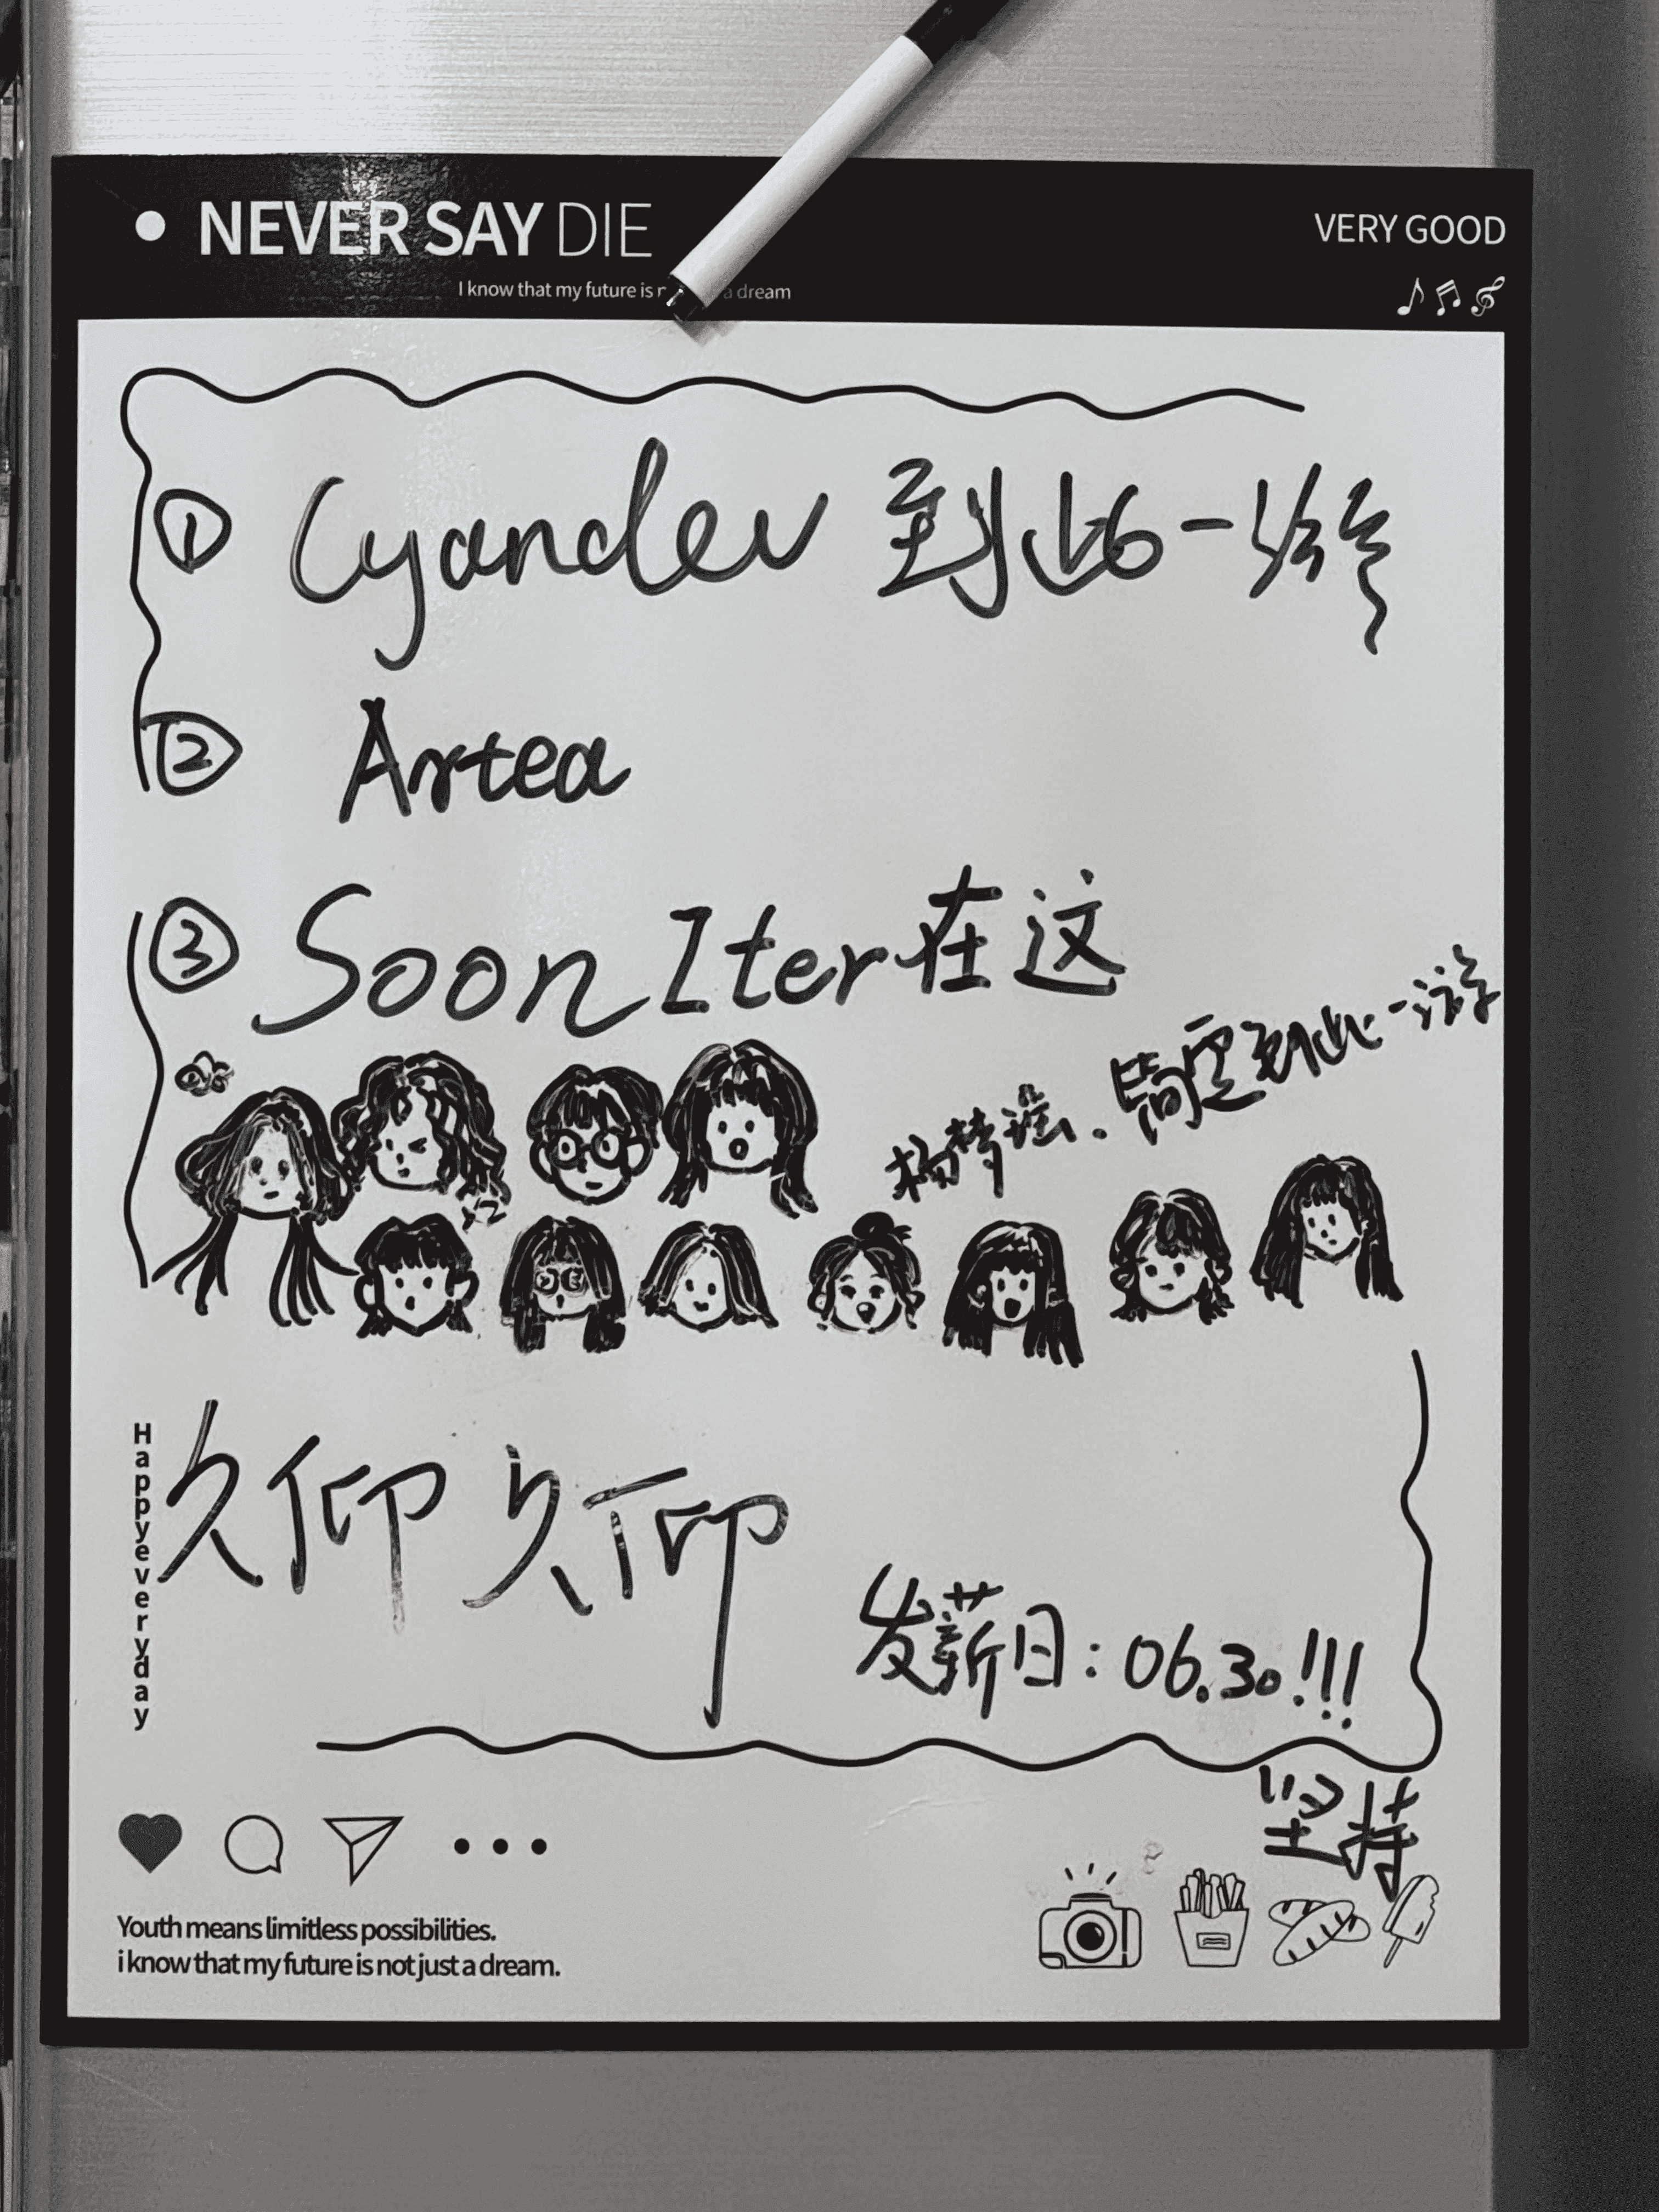 NEVER SAY DIE
VERY GOOD
I know that my future is n a dream
① Cyandev 到此一游
② Artea
③ Soon Iter在这
杨梦谣、 空到此一游
久仰久仰
Happyeveryday
发薪日：06.30!!!
坚持
Youth means limitless possibilities.
i know that my future is not just a dream.